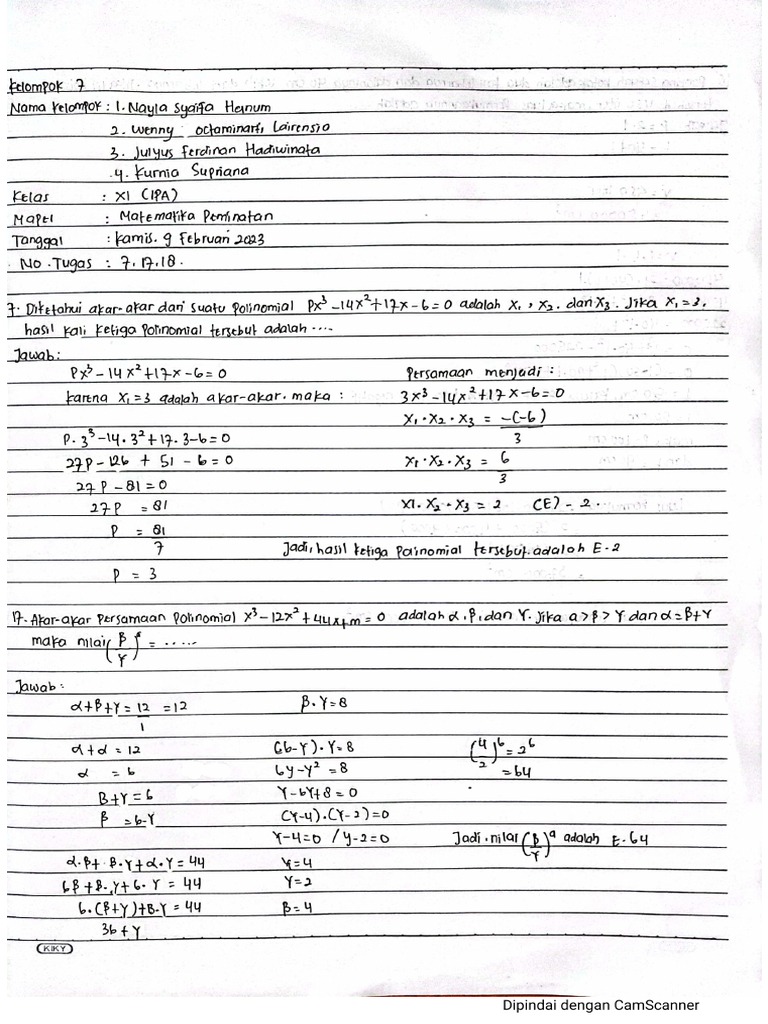 Kelompok 7
Nama Kelompok : 1. Nayla Syaifa Hanum
2. Wenny Octaminarti Lairensia
3. Julyus Ferdinan Hadiwinata
4. Kurnia Supriana
Kelas : XI (IPA)
Mapel : Matematika Peminatan
Tanggal : Kamis. 9 Februari 2023
No. Tugas : 7. 17. 18.
7. Diketahui akar-akar dari suatu polinomial Px³ - 14x² + 17x - 6 = 0 adalah x₁, x₂. dan x₃. Jika x₁ = 3.
hasil kali ketiga polinomial tersebut adalah ....
Jawab :
Px³ - 14x² + 17x - 6 = 0
karena x₁ = 3 adalah akar-akar. maka :
P. 3³ - 14. 3² + 17. 3 - 6 = 0
27P - 126 + 51 - 6 = 0
27P - 81 = 0
27P = 81
P = 81/7
P = 3
Persamaan menjadi :
3x³ - 14x² + 17x - 6 = 0
x₁ . x₂ . x₃ = -(-6)/3
x₁ . x₂ . x₃ = 6/3
x1. x₂ . x₃ = 2 (E) - 2.
Jadi, hasil ketiga polinomial tersebut adalah E - 2
17. Akar-akar persamaan polinomial x³ - 12x² + 44x + m = 0 adalah α, β, dan γ. Jika a > β > γ dan α = β + γ
maka nilai (β/γ)ᵅ = .....
Jawab :
α + β + γ = 12/1 = 12
α + α = 12
α = 6
β + γ = 6
β = 6 - γ
α.β + β.γ + α.γ = 44
6β + β.γ + 6.γ = 44
6.(β + γ) + β.γ = 44
36 + γ
β . γ = 8
(6 - γ) . γ = 8
6y - y² = 8
γ - 6γ + 8 = 0
(γ - 4) . (γ - 2) = 0
γ - 4 = 0 / y - 2 = 0
γ = 4
γ = 2
β = 4
(4/2)⁶ = 2⁶
= 64
Jadi. nilai (β/γ)ᵃ adalah E. 64
KIKY
Dipindai dengan CamScanner